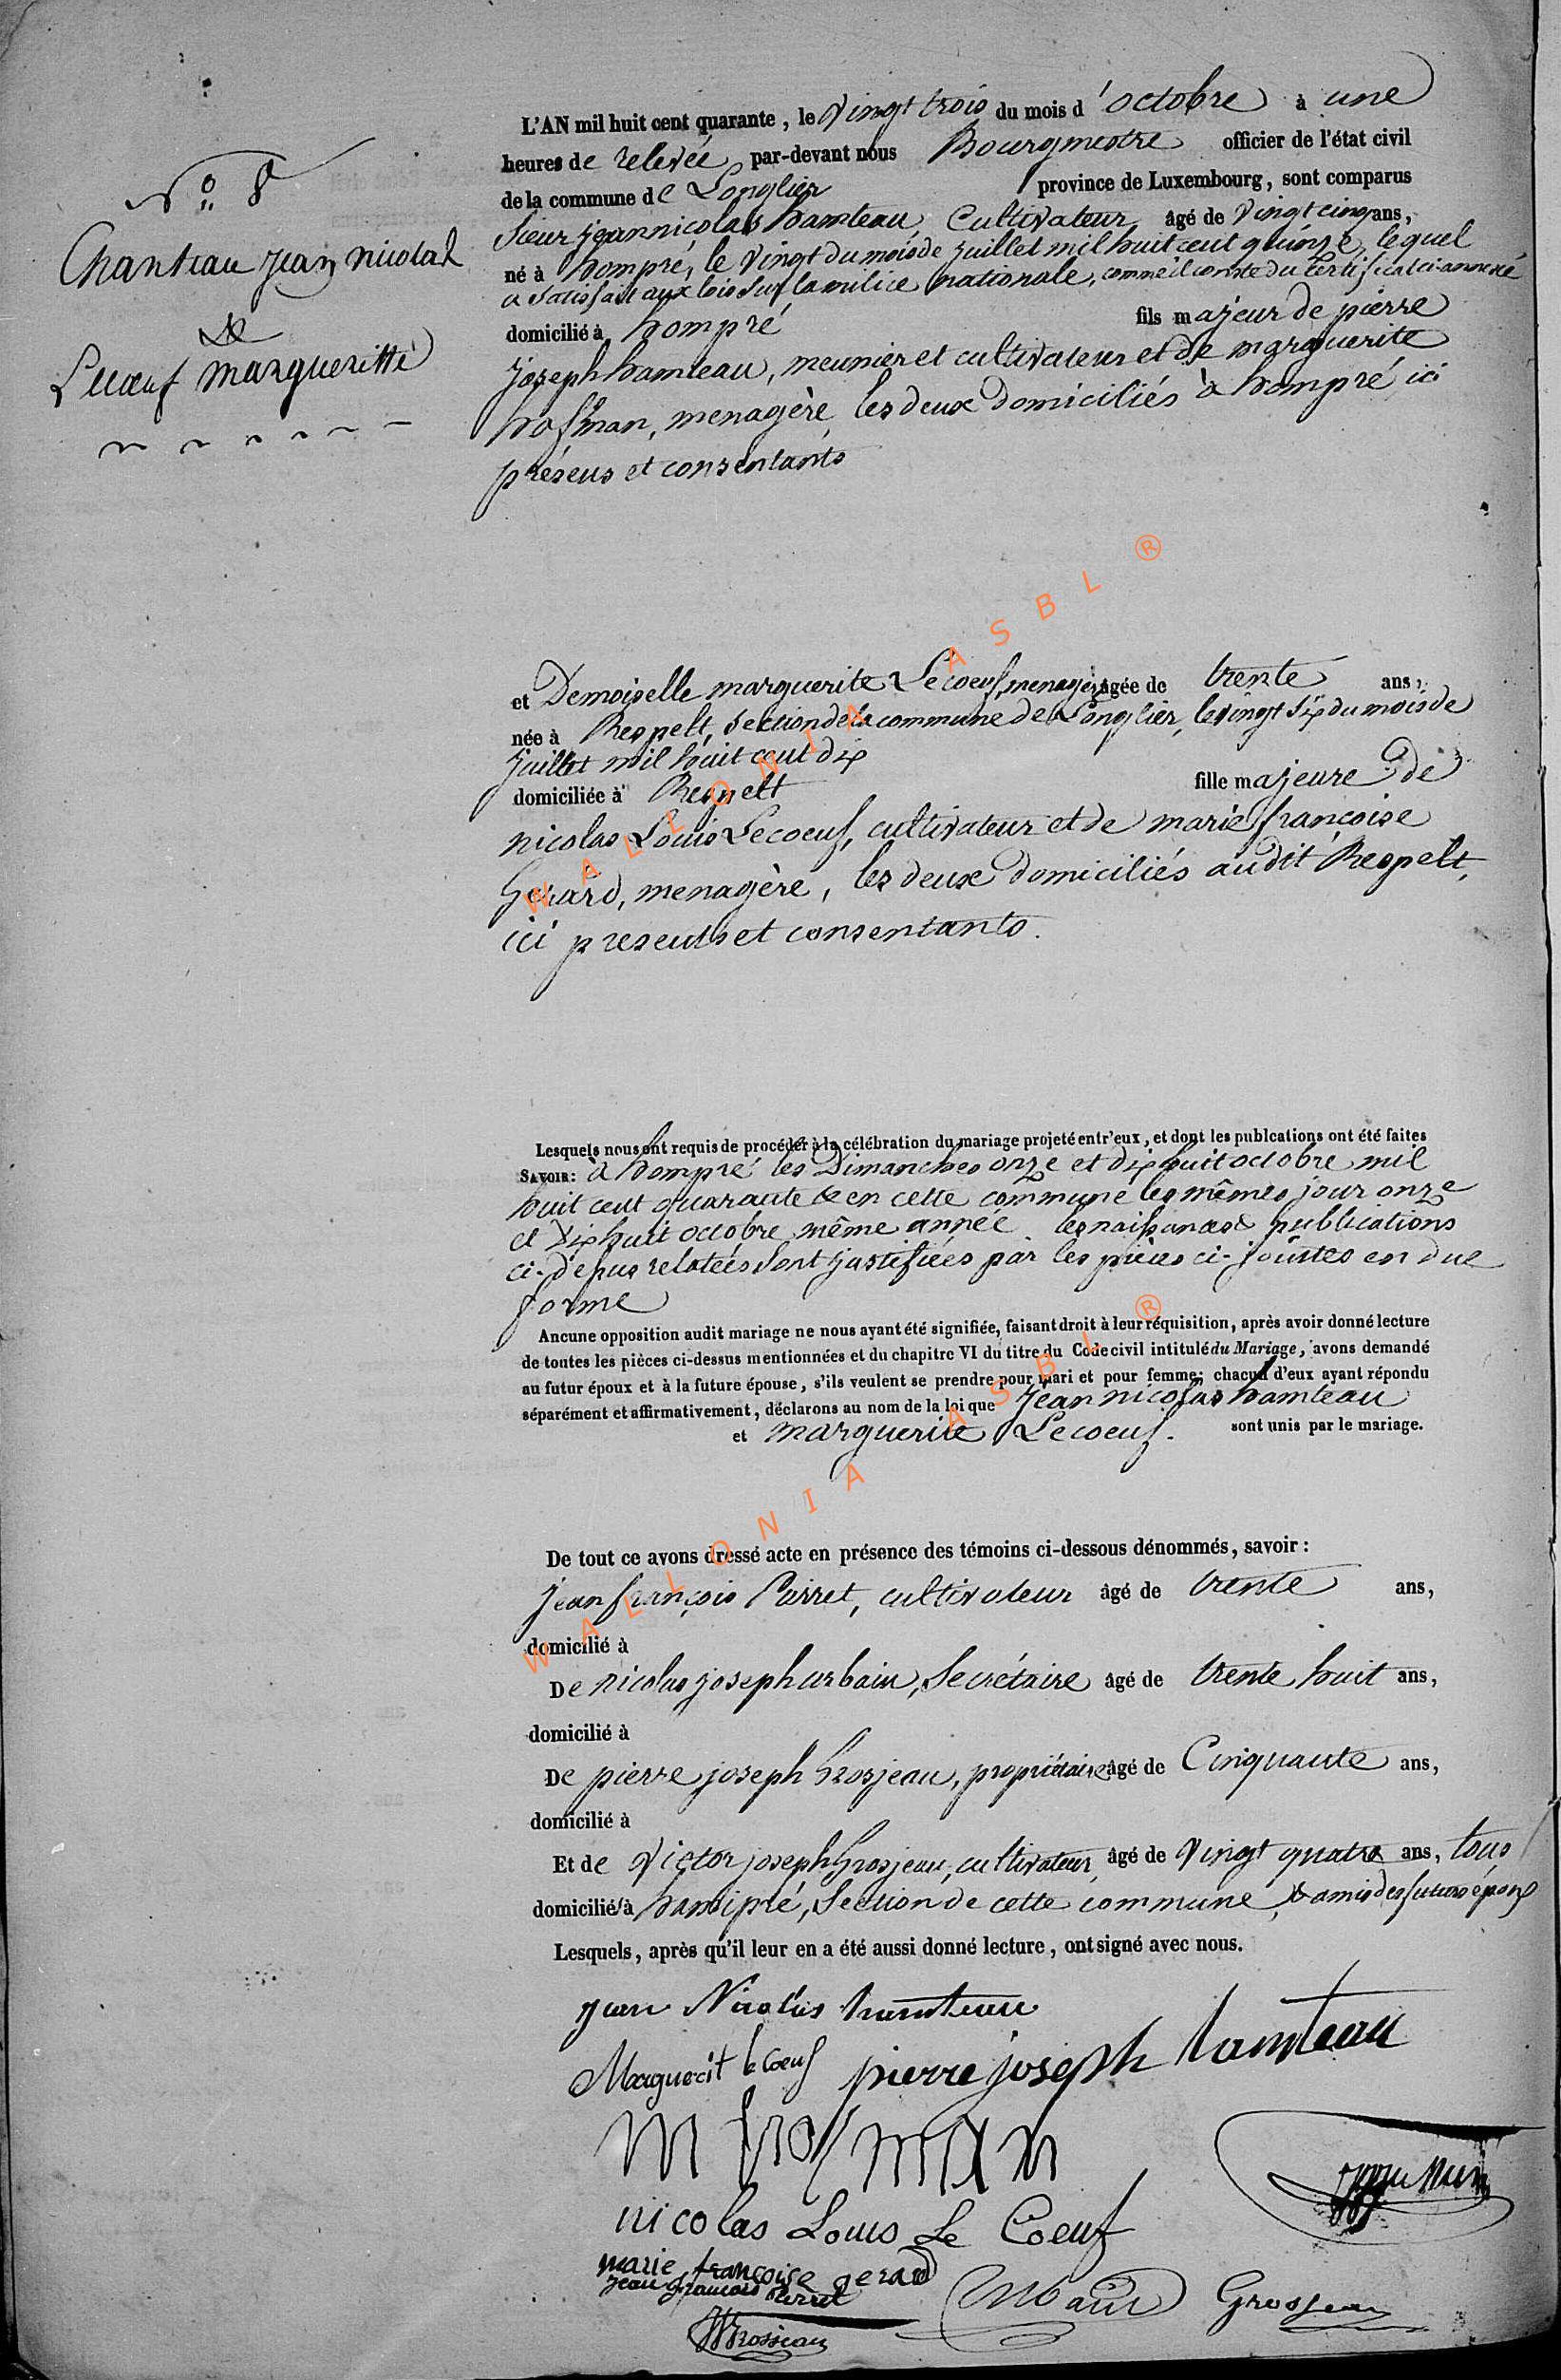 N° 8
Chanteau jean nicolas
&
Lecœuf margueritte
L'AN mil huit cent quarante, le vingt trois du mois d'octobre à une
heures de relevée par-devant nous Bourgmestre officier de l'état civil
de la commune de Longlier province de Luxembourg, sont comparus
Sieur jean nicolas hamteau, Cultivateur, âgé de vingt cinq ans,
né à hompré, le vingt du mois de juillet mil huit cent quinze, lequel
a satisfait aux lois sur la milice nationale, comme il conste du Certificat ci-annexé
domicilié à hompré fils majeur de pierre
joseph hamteau, meunier et cultivateur et de marguerite
hofman, menagère, les deux domiciliés à hompré ici
présens et consentants
et Demoiselle marguerite Lecoeuf, menagère âgée de trente ans,
née à Respelt, Section de la commune de Longlier, le vingt six du mois de
juillet mil huit cent dix
domiciliée à Respelt fille majeure de
nicolas Louis Lecoeuf, cultivateur et de marie françoise
Gerard, menagère, les deux domiciliés audit Respelt,
ici presents et consentants.
Lesquels nous ont requis de procéder à la célébration du mariage projeté entr'eux, et dont les publcations ont été faites
SAVOIR: à hompré les Dimanches onze et dix huit octobre mil
huit cent quarante & en cette commune les mêmes jour onze
et dix huit octobre même année les naissances & publications
ci-dessus relatées sont justifiées par les pièces ci-jointes en due
forme
Ancune opposition audit mariage ne nous ayant été signifiée, faisant droit à leur réquisition, après avoir donné lecture
de toutes les pièces ci-dessus mentionnées et du chapitre VI du titre du Code civil intitulé du Mariage, avons demandé
au futur époux et à la future épouse, s'ils veulent se prendre pour mari et pour femme; chacun d'eux ayant répondu
séparément et affirmativement, déclarons au nom de la loi que jean nicolas hamteau
et marguerite Lecoeuf. sont unis par le mariage.
De tout ce avons dressé acte en présence des témoins ci-dessous dénommés, savoir :
jean françois Pierret, cultivateur âgé de trente ans,
domicilié à
De nicolas joseph urbain, Secrétaire âgé de trente huit ans,
domicilié à
De pierre joseph Grosjean, propriétaire âgé de Cinquante ans,
domicilié à
Et de victor joseph Grosjean, cultivateur, âgé de vingt quatre ans, tous
domicilié à hamipré, Section de cette commune, & amis des futurs époux
Lesquels, après qu'il leur en a été aussi donné lecture, ont signé avec nous.
jean Nicolas hamteau
Marguerit le Coeuf pierre joseph hamteau
m hofman
nicolas Louis Le Coeuf
marie françoise gerard
jean françois Pierret Urbain Grosjean
Grosjean
WALLONIA ASBL ®
WALLONIA ASBL ®